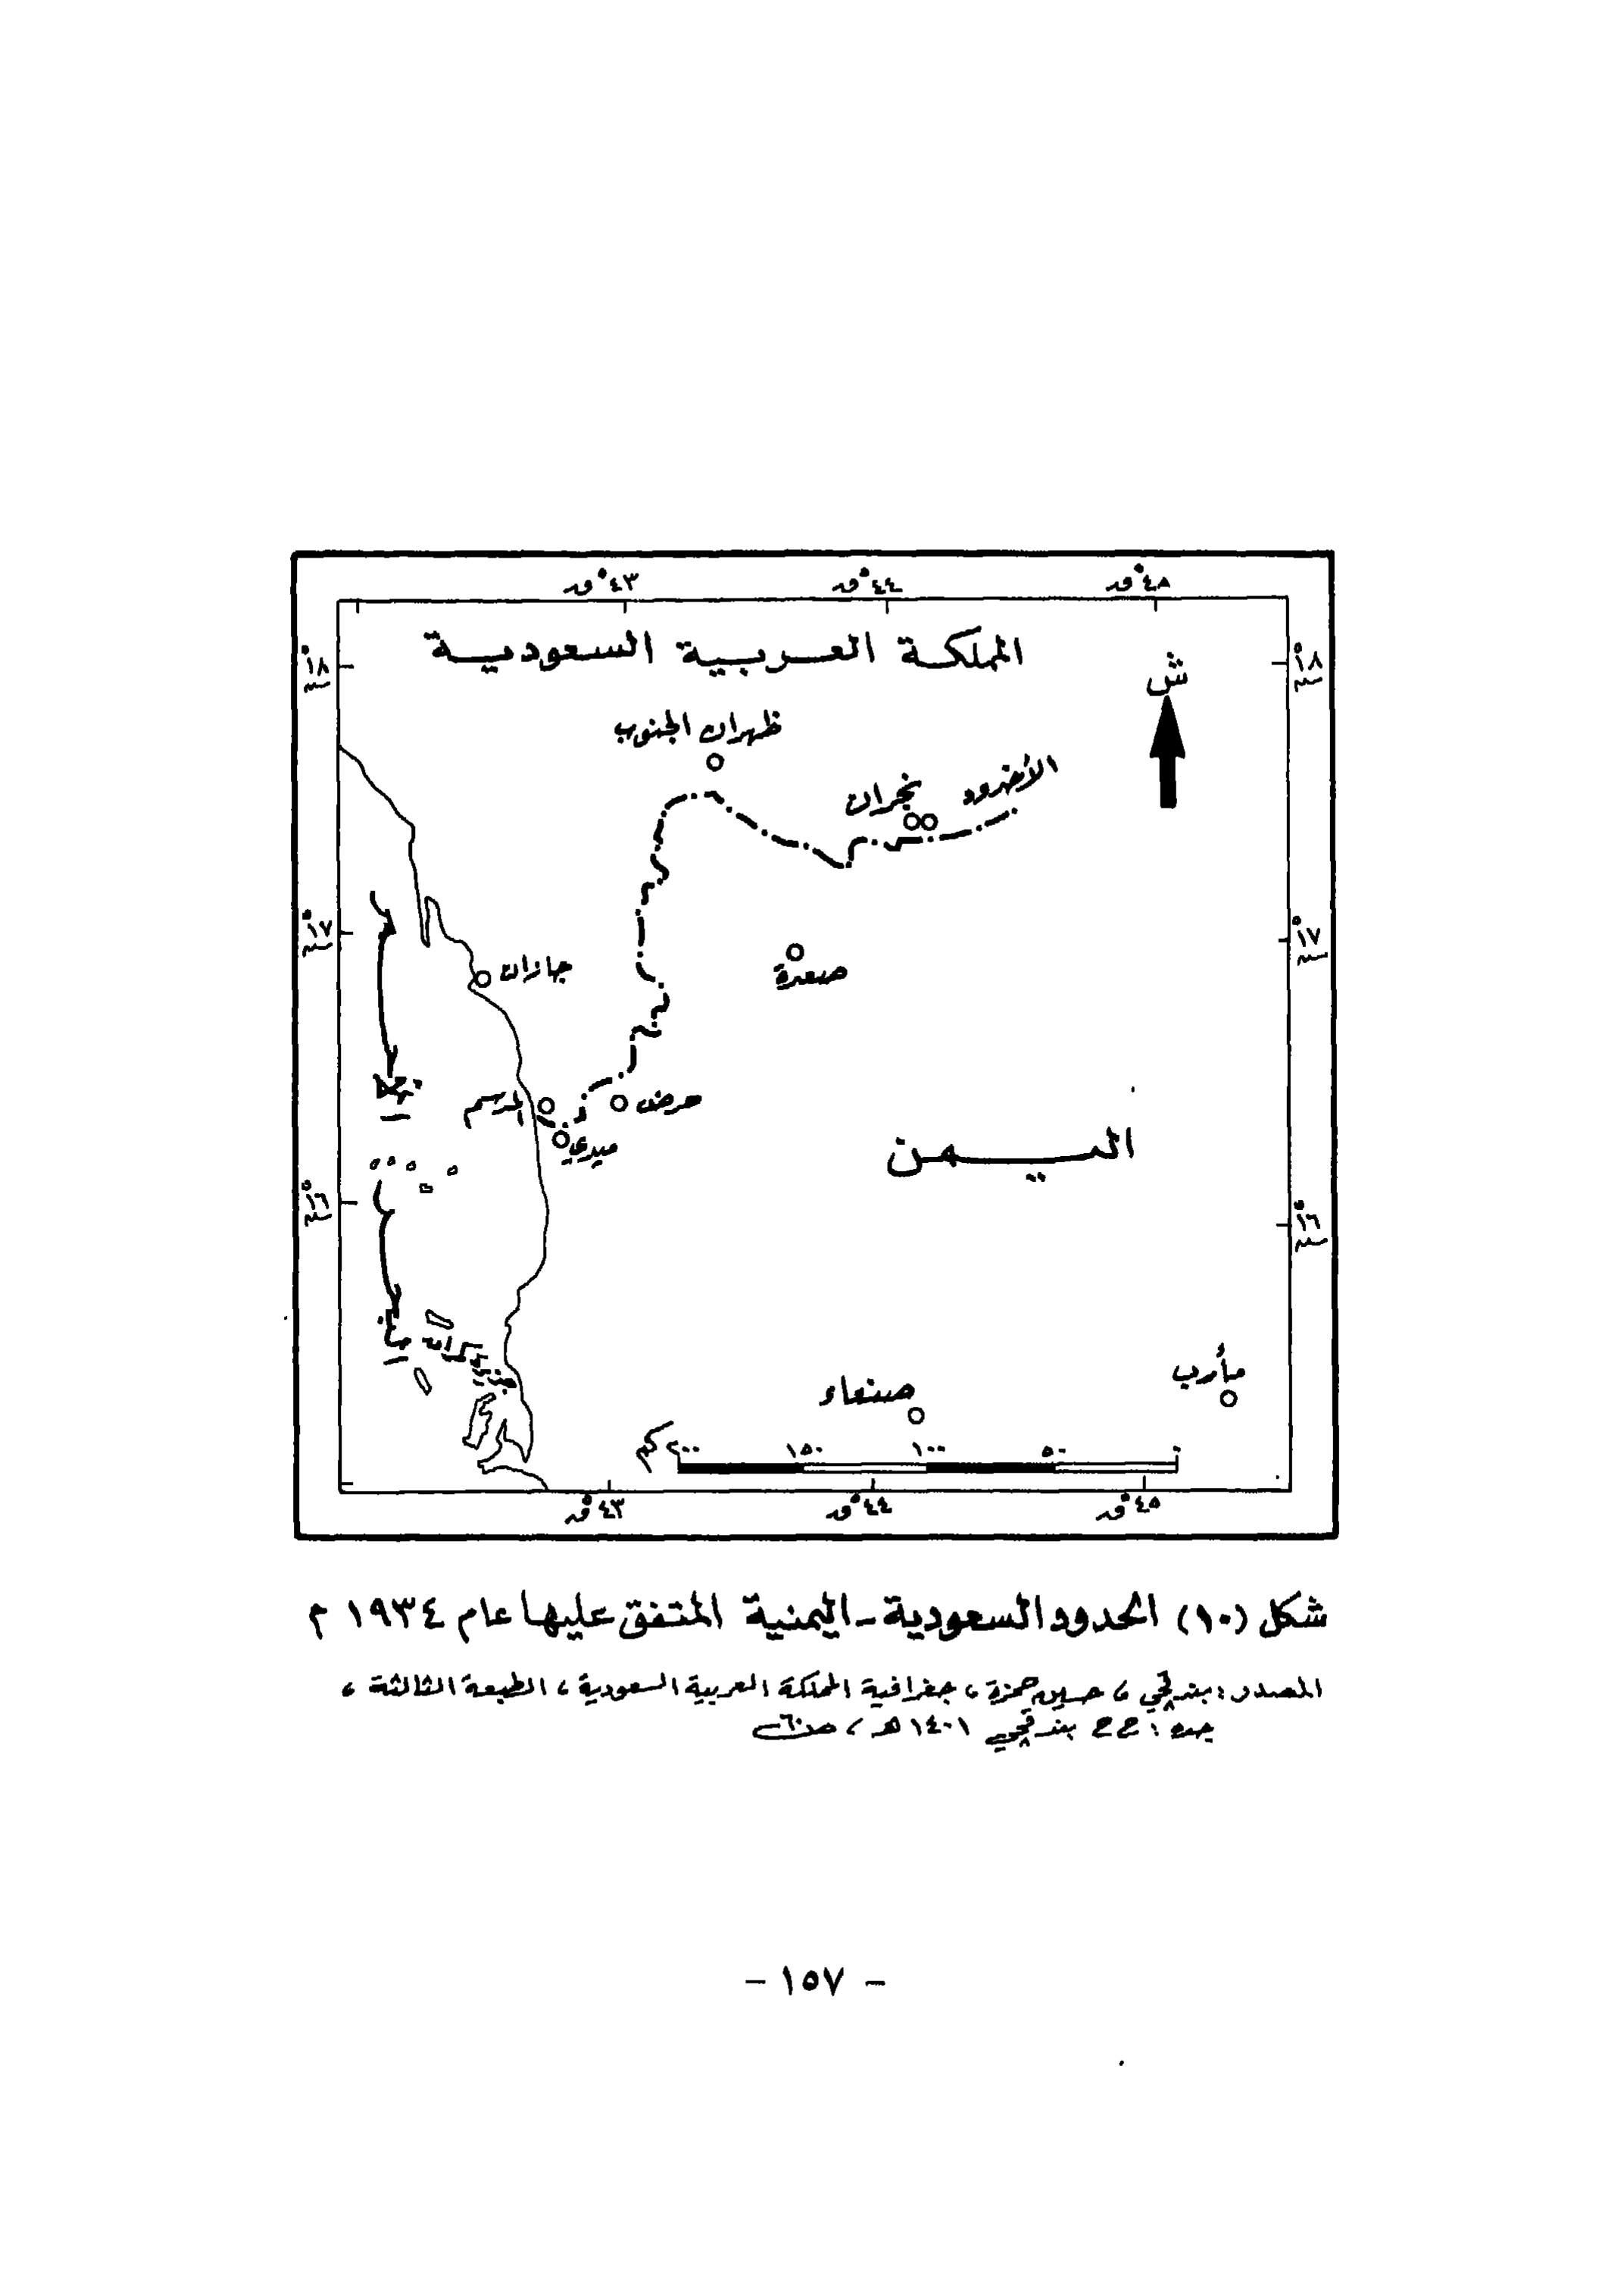 ٤٣° ق
٤٤° ق
٤٥° ق
المملكة العربية السعودية
١٨°
١٨°
ش
ظهران الجنوب
الأخدود
نجران
١٧°
١٧°
جازان
صعدة
حرض
الموسم
ميدي
اليمن
١٦°
١٦°
مأرب
صنعاء
٢٠٠ كم
١٥٠
١٠٠
٥٠
٠
٤٣° ق
٤٤° ق
٤٥° ق
شكل (١٠) الحدود السعودية - اليمنية المتفق عليها عام ١٩٣٤ م
المصدر : بندقجي ، حسين حمزة ، جغرافية المملكة العربية السعودية ، الطبعة الثالثة ،
جدة : ح ح بندقجي ١٤٠١ هـ ، ص ٦٠
- ١٥٧ -